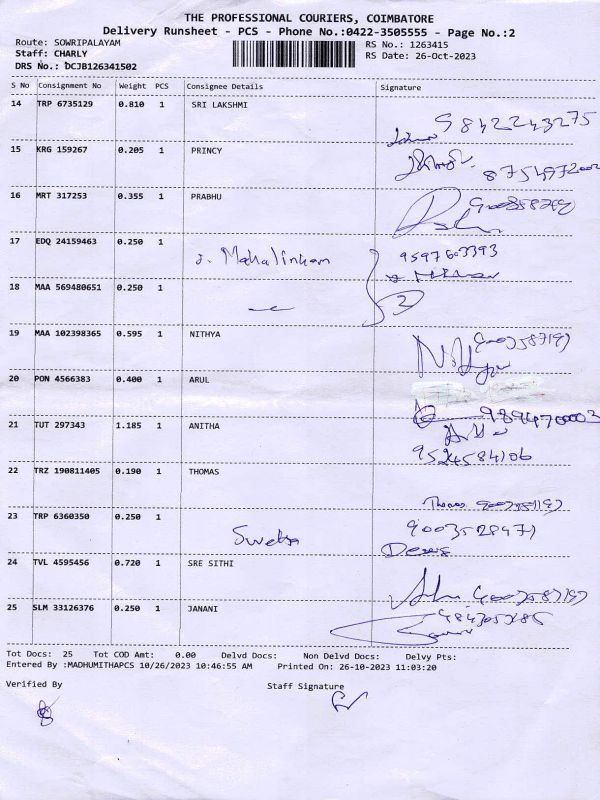 THE PROFESSIONAL COURIERS, COIMBATORE
Delivery Runsheet - PCS - Phone No.:0422-3505555 - Page No.:2
Route: SOWRIPALAYAM RS No.: 1263415
Staff: CHARLY RS Date: 26-Oct-2023
DRS No.: DCJB126341502
S No Consignment No Weight PCS Consignee Details Signature
14 TRP 6735129 0.810 1 SRI LAKSHMI 9842243275
15 KRG 159267 0.205 1 PRINCY
16 MRT 317253 0.355 1 PRABHU
17 EDQ 24159463 0.250 1 J. Mahalinkam 9597603393
18 MAA 569480651 0.250 1 2
19 MAA 102398365 0.595 1 NITHYA
20 PON 4566383 0.400 1 ARUL 9894470003
21 TUT 297343 1.185 1 ANITHA
9524584106
22 TRZ 190811405 0.190 1 THOMAS
Thomas
23 TRP 6360350 0.250 1 Swetha 9003528471
24 TVL 4595456 0.720 1 SRE SITHI
25 SLM 33126376 0.250 1 JANANI
Tot Docs: 25 Tot COD Amt: 0.00 Delvd Docs: Non Delvd Docs: Delvy Pts:
Entered By :MADHUMITHAPCS 10/26/2023 10:46:55 AM Printed On: 26-10-2023 11:03:20
Verified By Staff Signature